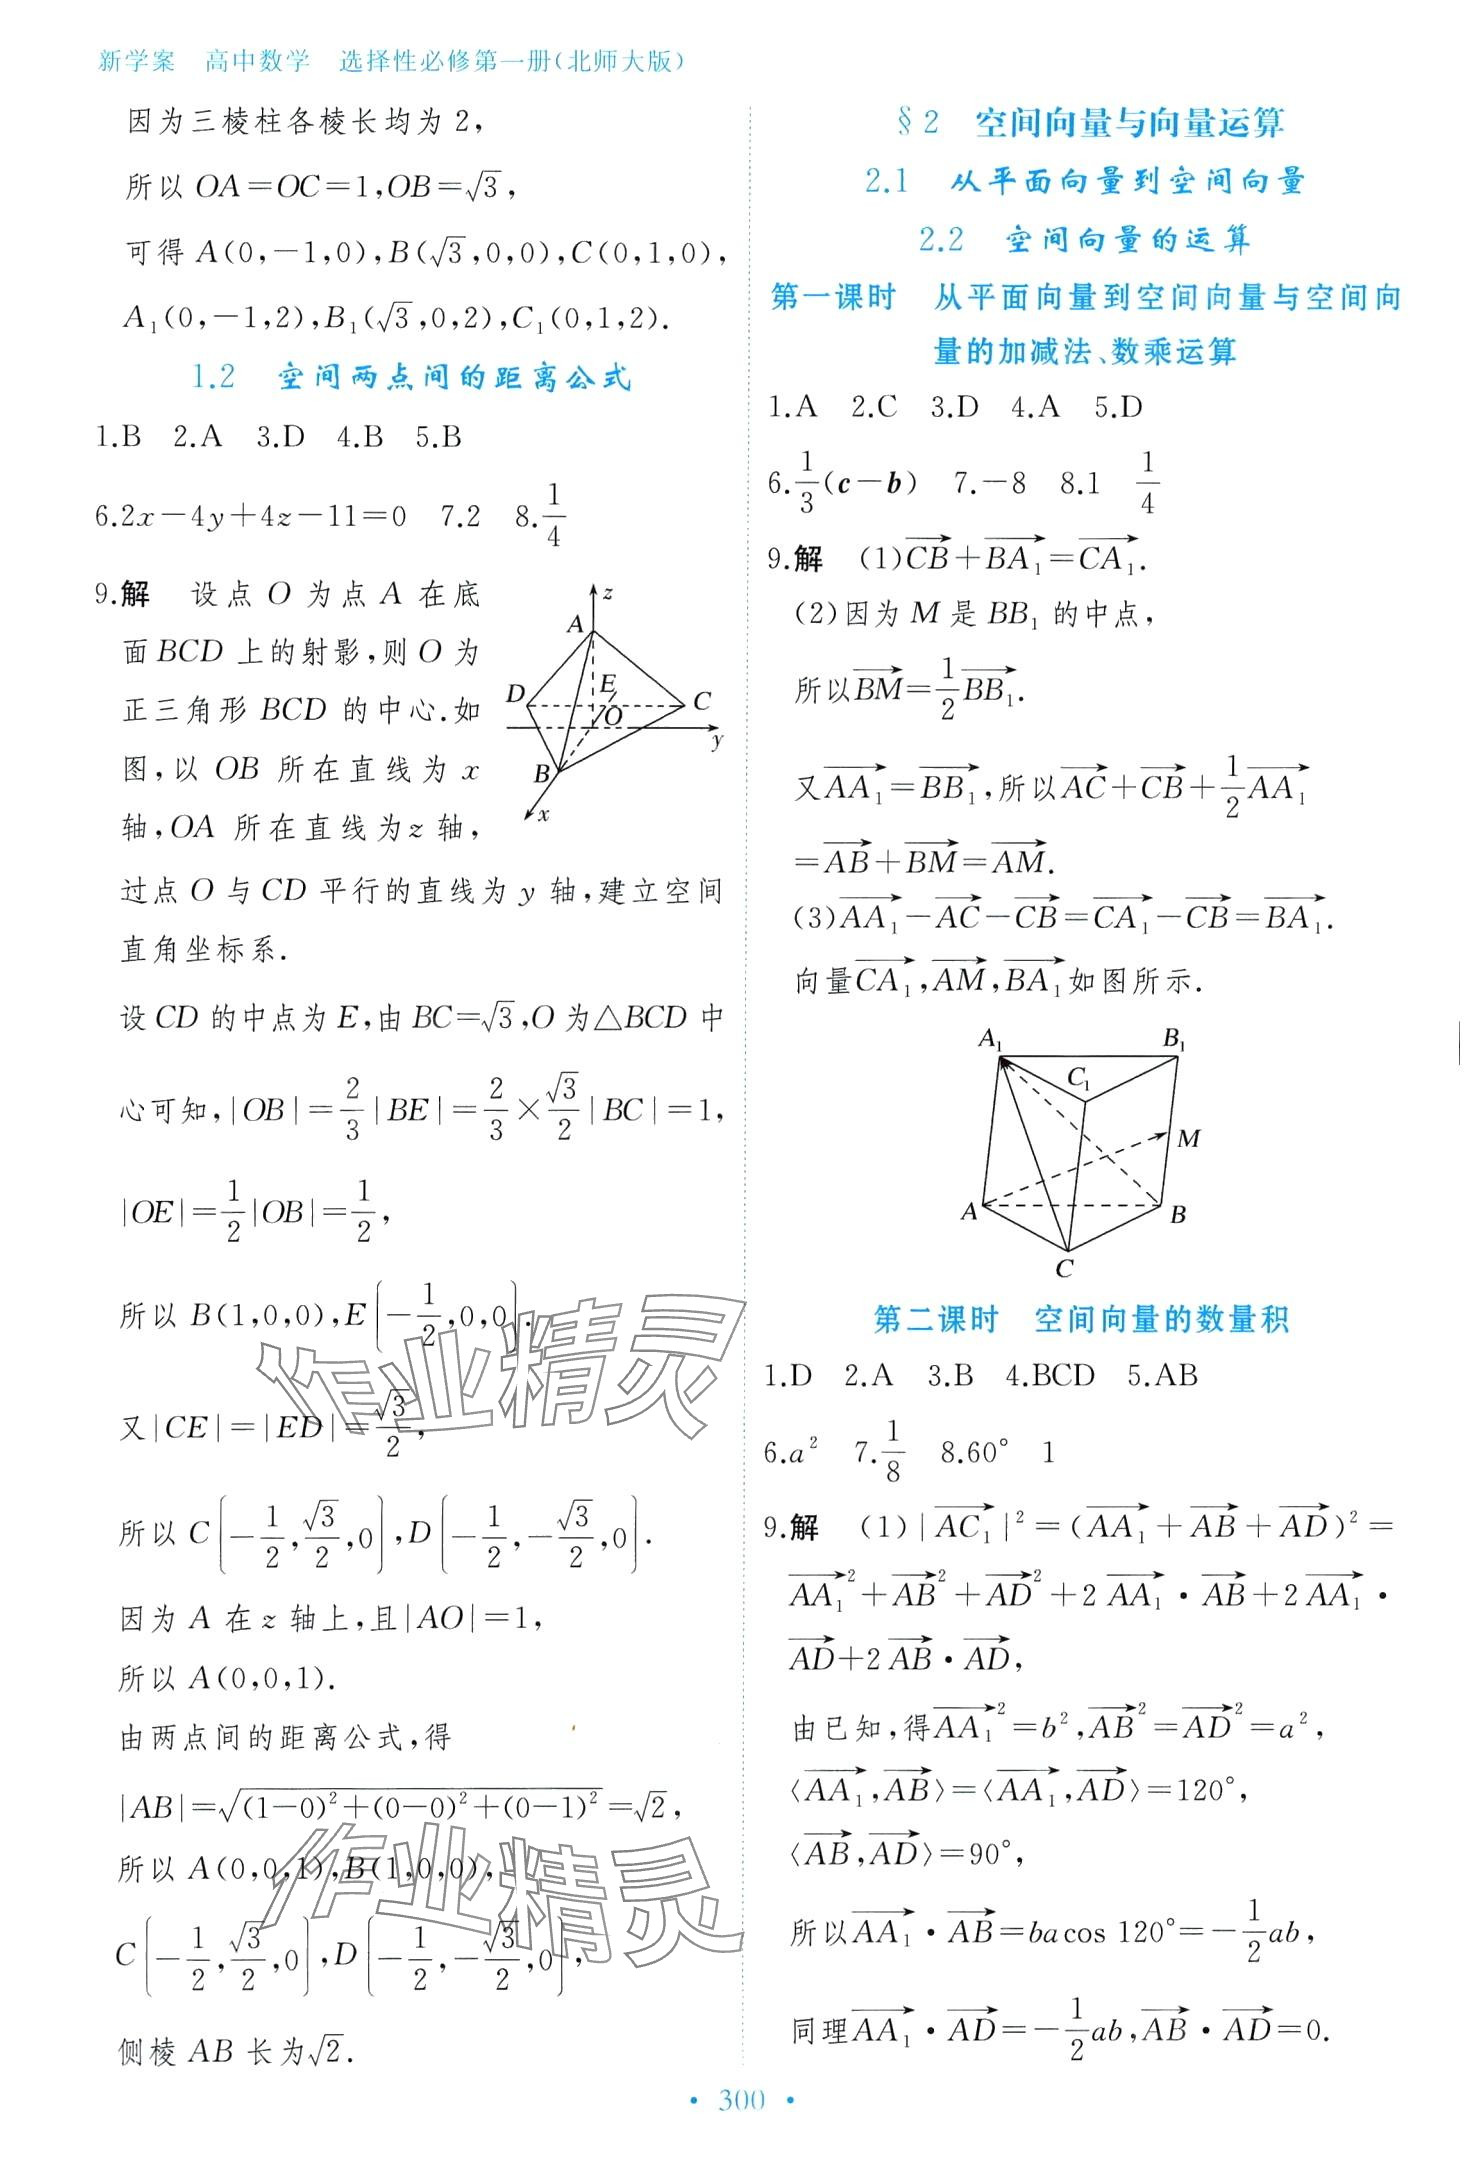 新学案　高中数学　选择性必修第一册(北师大版)
因为三棱柱各棱长均为2,
所以OA=OC=1,OB=√3,
可得A(0,-1,0),B(√3,0,0),C(0,1,0),
A₁(0,-1,2),B₁(√3,0,2),C₁(0,1,2).
1.2　空间两点间的距离公式
1.B　2.A　3.D　4.B　5.B
6.2x-4y+4z-11=0　7.2　8.1/4
9.解　设点O为点A在底
面BCD上的射影,则O为
正三角形BCD的中心.如
图,以OB所在直线为x
轴,OA所在直线为z轴,
过点O与CD平行的直线为y轴,建立空间
直角坐标系.
z
A
E
D
C
O
y
B
x
设CD的中点为E,由BC=√3,O为△BCD中
心可知,|OB|=2/3|BE|=2/3×√3/2|BC|=1,
|OE|=1/2|OB|=1/2,
所以B(1,0,0),E(-1/2,0,0).
又|CE|=|ED|=√3/2,
所以C(-1/2,√3/2,0),D(-1/2,-√3/2,0).
因为A在z轴上,且|AO|=1,
所以A(0,0,1).
由两点间的距离公式,得
|AB|=√((1-0)²+(0-0)²+(0-1)²)=√2,
所以A(0,0,1),B(1,0,0),
C(-1/2,√3/2,0),D(-1/2,-√3/2,0),
侧棱AB长为√2.
作业精灵
作业精灵
§2　空间向量与向量运算
2.1　从平面向量到空间向量
2.2　空间向量的运算
第一课时　从平面向量到空间向量与空间向
量的加减法、数乘运算
1.A　2.C　3.D　4.A　5.D
6.1/3(c-b)　7.-8　8.1　1/4
9.解　(1)CB→+BA₁→=CA₁→.
(2)因为M是BB₁的中点,
所以BM→=1/2BB₁→.
又AA₁→=BB₁→,所以AC→+CB→+1/2AA₁→
=AB→+BM→=AM→.
(3)AA₁→-AC→-CB→=CA₁→-CB→=BA₁→.
向量CA₁→,AM→,BA₁→如图所示.
A₁
B₁
C₁
M
A
B
C
第二课时　空间向量的数量积
1.D　2.A　3.B　4.BCD　5.AB
6.a²　7.1/8　8.60°　1
9.解　(1)|AC₁→|²=(AA₁→+AB→+AD→)²=
AA₁→²+AB→²+AD→²+2AA₁→·AB→+2AA₁→·
AD→+2AB→·AD→,
由已知,得AA₁→²=b²,AB→²=AD→²=a²,
〈AA₁→,AB→〉=〈AA₁→,AD→〉=120°,
〈AB→,AD→〉=90°,
所以AA₁→·AB→=bacos 120°=-1/2ab,
同理AA₁→·AD→=-1/2ab,AB→·AD→=0.
· 300 ·